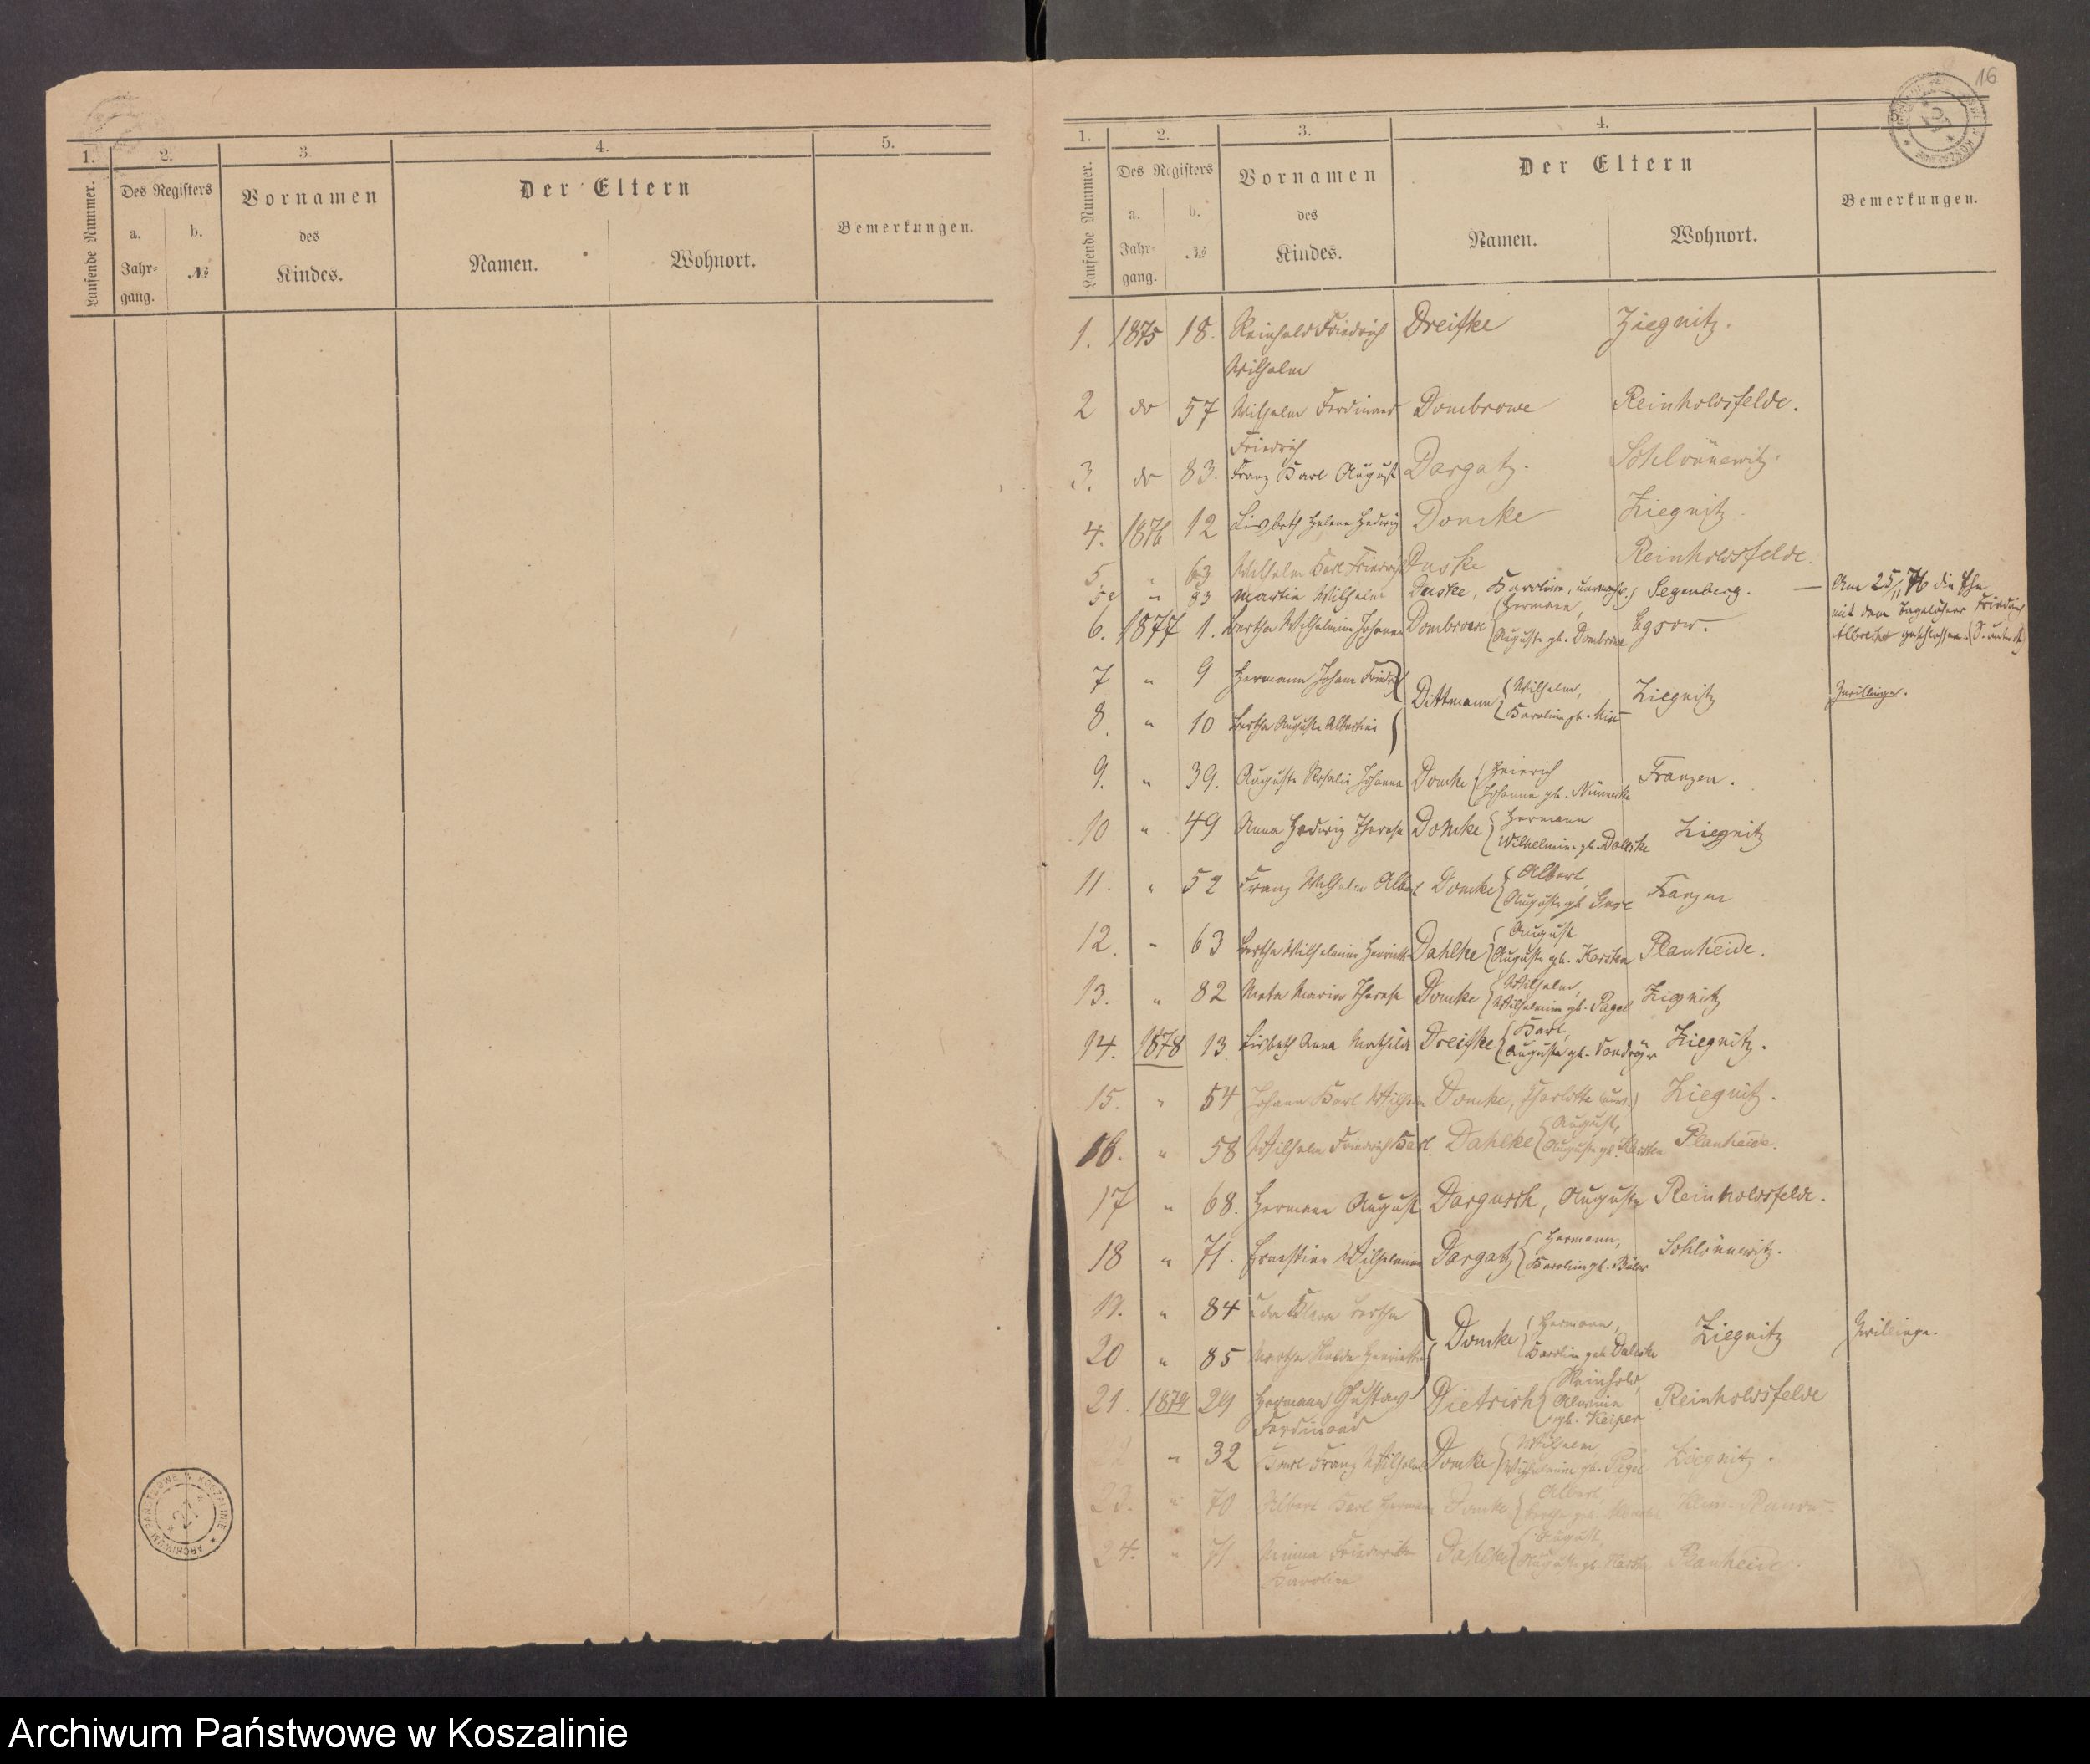 1. 2. 3. 4. 5.
Laufende Nummer.
Des Registers
a. Jahrgang.
b. №
Vornamen des Kindes.
Der Eltern
Namen.
Wohnort.
Bemerkungen.
ARCHIWUM PAŃSTWOWE W KOSZALINIE
16
1. 2. 3. 4. 5.
Laufende Nummer.
Des Registers
a. Jahrgang.
b. №
Vornamen des Kindes.
Der Eltern
Namen.
Wohnort.
Bemerkungen.
1. 1875 18. Reinhold Friedrich Dreifke Ziegnitz.
Wilhelm
2 do 57 Wilhelm Ferdinand Dombrowe Reinholdsfelde.
Friedrich
3. do 83. Franz Karl August Dargatz. Schlönnewitz.
4. 1876 12 Lisbeth Helene Hedwig Domke Ziegnitz.
5. " 63 Wilhelm Karl Friedrich Duske Reinholdsfelde.
5a " 83 Martin Wilhelm Duske, Karoline, unverehel. Segenberg. — Am 25/11 76 die Ehe
mit dem Tagelöhner Friedrich
Albrecht geschlossen.
6. 1877 1. Bertha Wilhelmine Johanne Dombrowe Hermann, Auguste gb. Dombrowe Egsow.
7 " 9 Hermann Johann Friedr.
Dittmann Wilhelm, Karoline gb. Ziegnitz Zwillinge.
8. " 10 Bertha Auguste Albertine
9. " 39. Auguste Rosalie Johanna Domke Heinrich Johanne gb. Franzen.
10 " 49 Anna Hedwig Therese Domke Hermann Wilhelmine gb. Daleske Ziegnitz
11. " 52 Franz Wilhelm Albert Domke Albert, Auguste gb. Franzen
12. " 63 Bertha Wilhelmine Henriette Dahlke August Auguste gb. Karsten Planheide.
13. " 82 Meta Marie Therese Domke Wilhelm, Wilhelmine gb. Pagel Ziegnitz
14. 1878 13 Lisbeth Anna Mathilde Dreifke Karl, Auguste gb. Ziegnitz.
15. " 54 Johann Karl Wilhelm Domke, Charlotte (unv.) Ziegnitz.
16. " 58 Wilhelm Friedrich Karl. Dahlke August, Auguste gb. Karsten Planheide.
17 " 68. Hermann August Dargusch, Auguste Reinholdsfelde.
18 " 71. Ernestine Wilhelmine Dargatz Hermann, Karoline gb. Schlönnewitz.
19. " 84 Ida Klara Bertha
Domke Hermann, Karoline geb. Daleske Ziegnitz Zwillinge.
20 " 85 Martha Hulda Henriette
21. 1879 29 Hermann Gustav Dietrich Reinhold, Alwine gb. Keiper Reinholdsfelde
Ferdinand
22 " 32 Karl Franz Wilhelm Domke Wilhelm Wilhelmine gb. Pagel Ziegnitz.
23. " 70 Albert Karl Hermann Domke Albert,
24. " 71 Minna Friederike Dahlke August, Auguste gb. Karsten Planheide.
Karoline
ARCHIWUM PAŃSTWOWE W KOSZALINIE
Archiwum Państwowe w Koszalinie